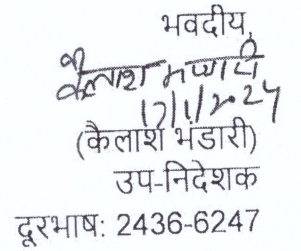 भवदीय,
कैलाश भण्डारी
17/1/2024
(कैलाश भंडारी)
उप-निदेशक
दूरभाष: 2436-6247